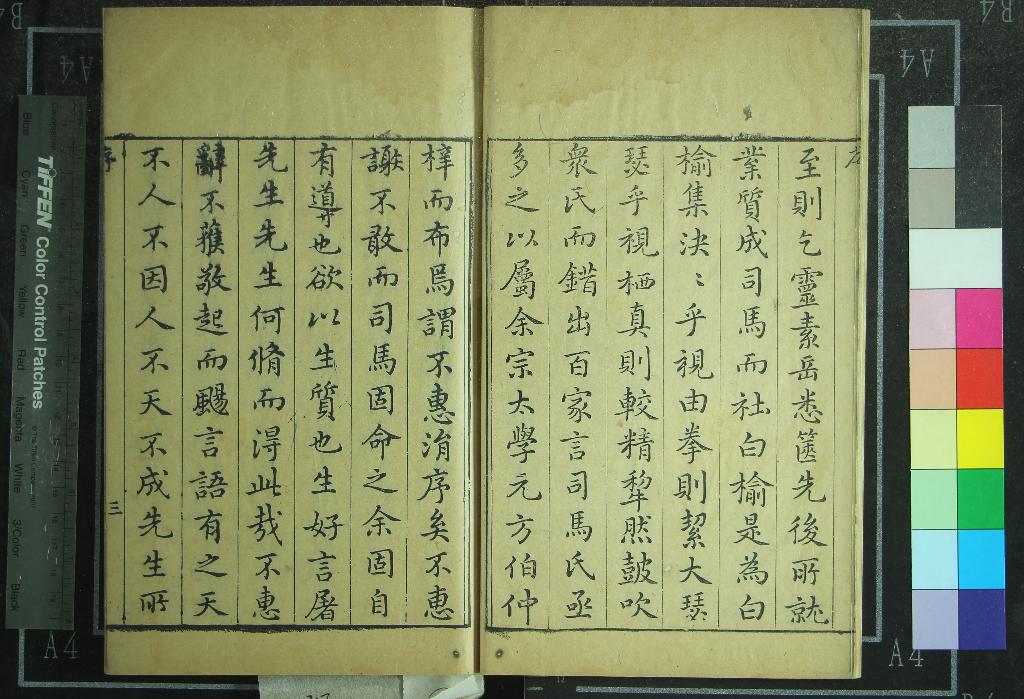 至則乞靈素岳悉篋先後所就
業質成司馬而社白榆是為白
榆集決〻乎視由拳則絜大瑟
瑟乎視栖真則較精犂然鼓吹
衆氏而錯出百家言司馬氏亟
多之以屬余宗太學元方伯仲
梓而布焉謂不惠湏序矣不惠
謝不敢而司馬固命之余固自
有導也欲以生質也生好言屠
先生先生何脩而淂此哉不惠
辭不獲敬起而颺言語有之天
不人不因人不天不成先生所
序
三
TIFFEN Color Control Patches
Blue
Cyan
Green
Yellow
Red
Magenta
White
3/Color
Black
A4
A4
A4
A4
B4